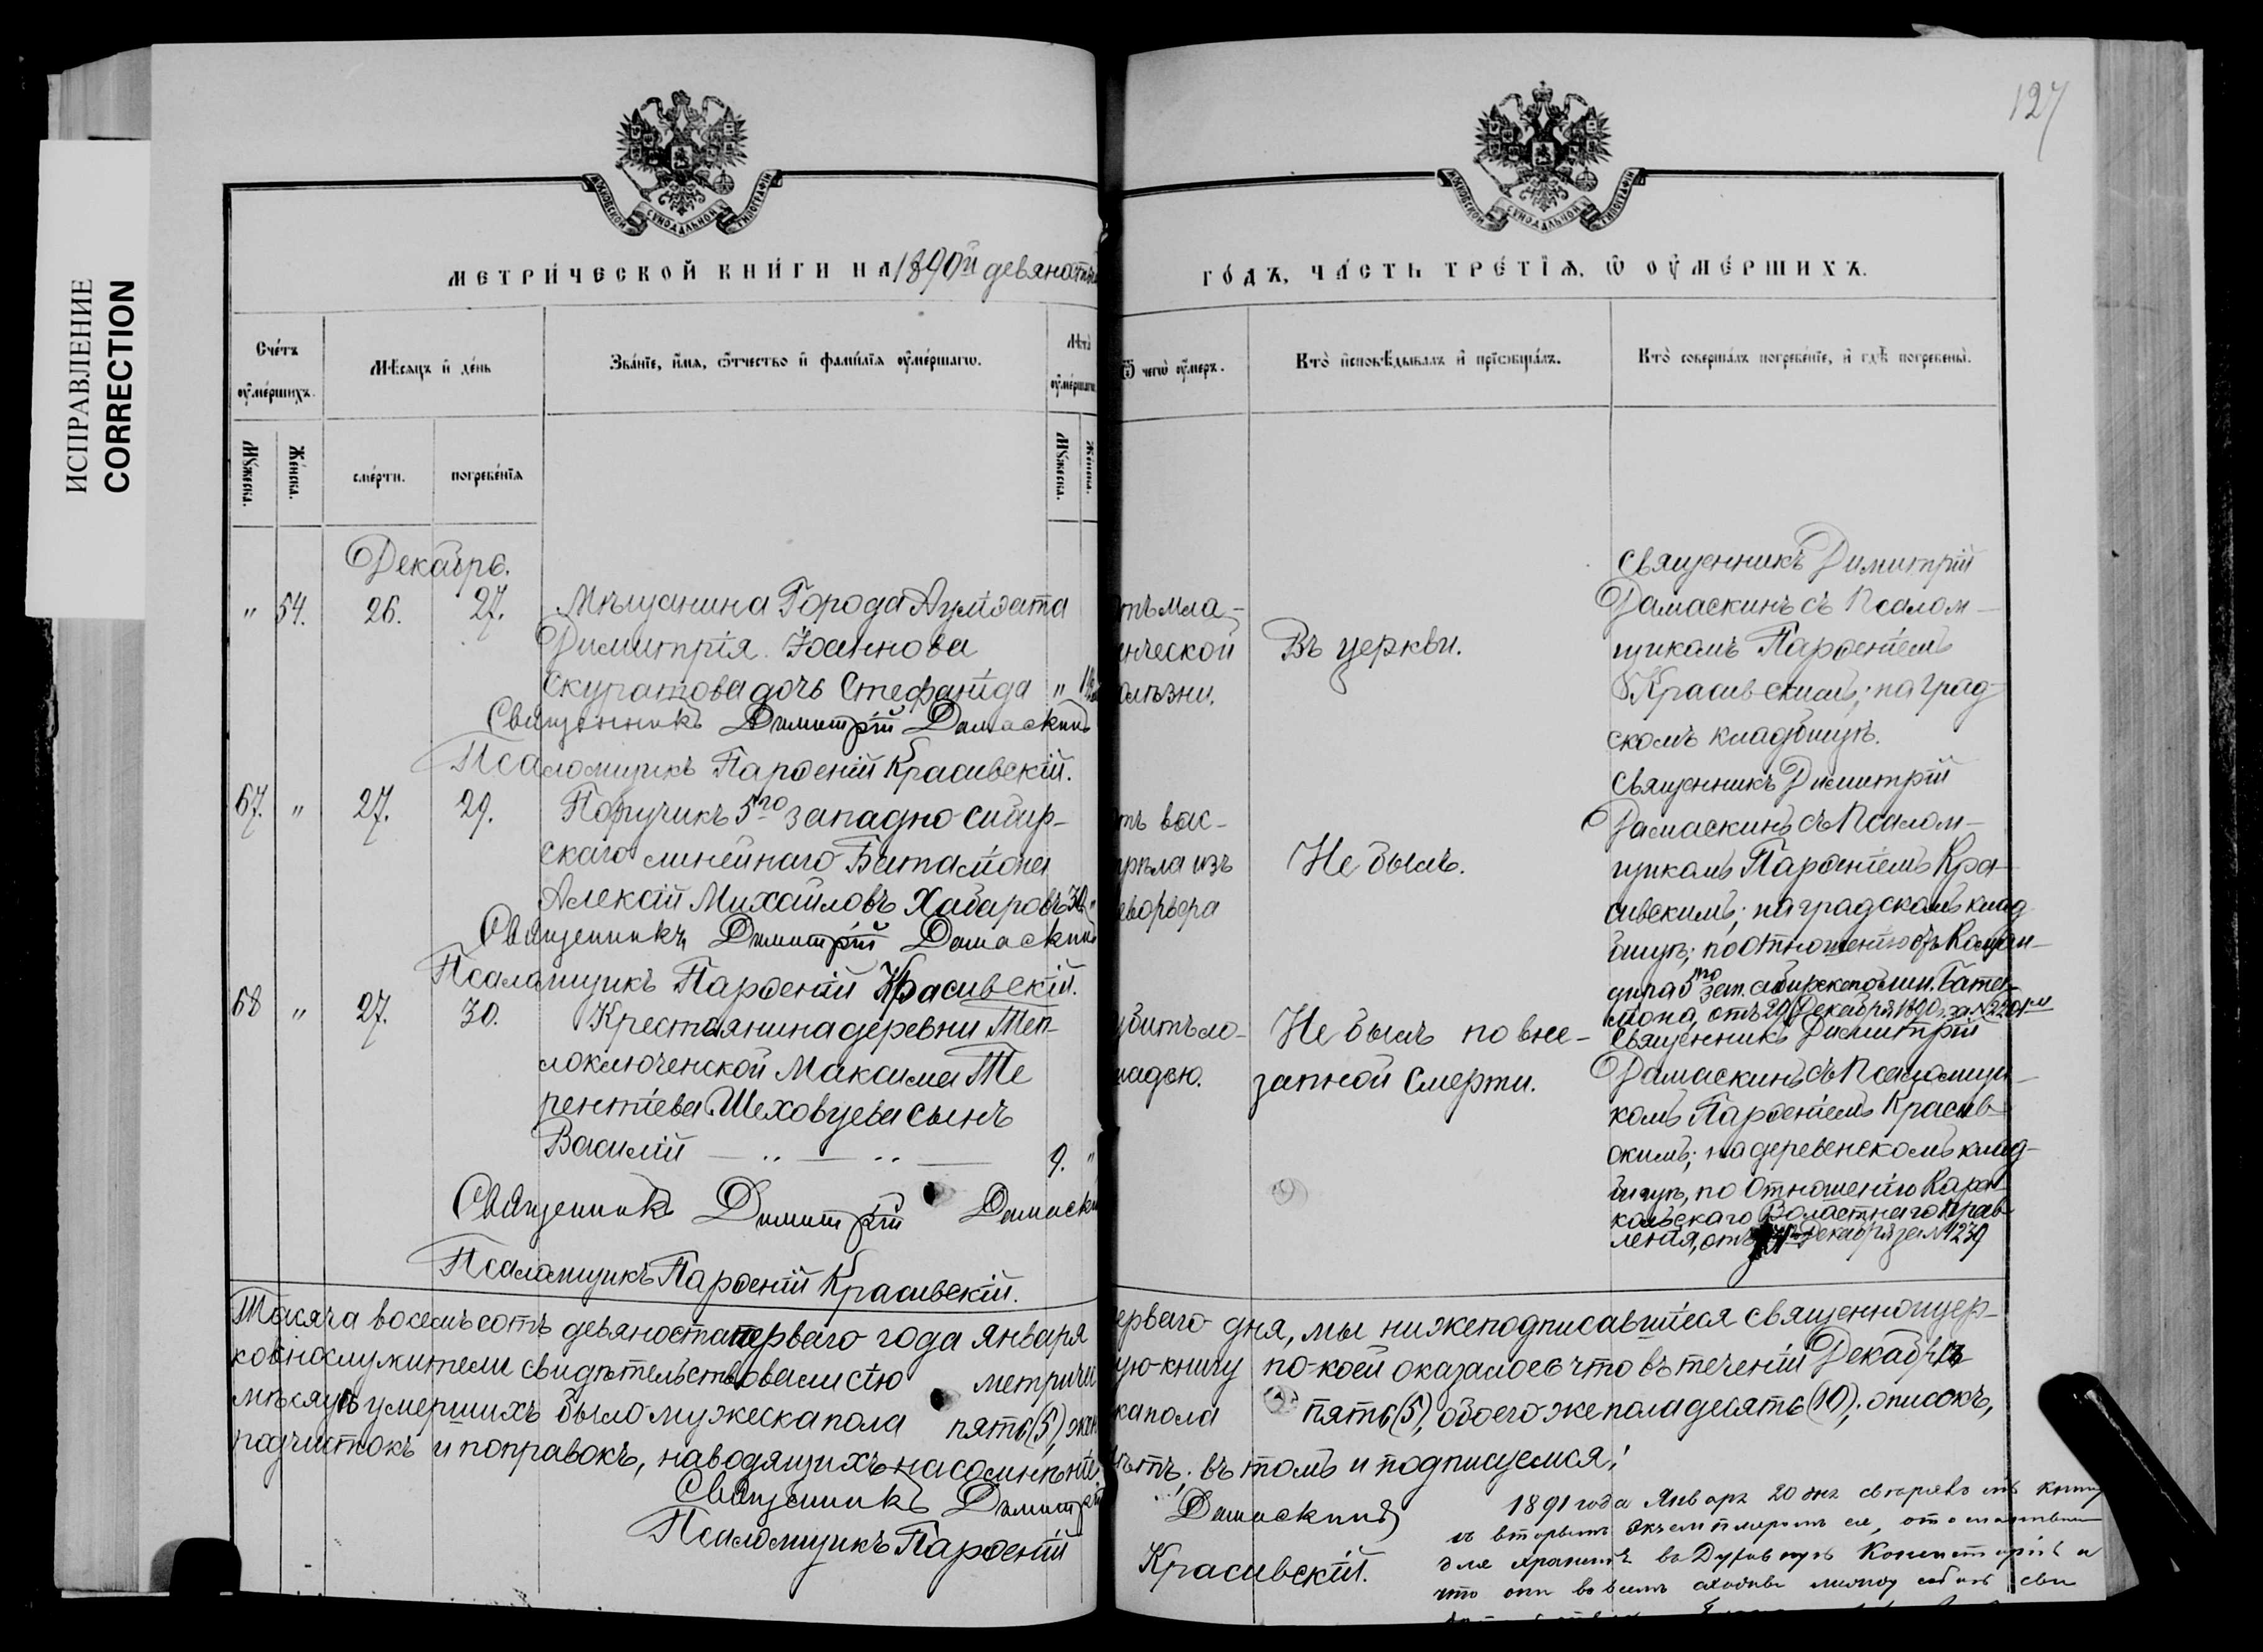 127
ИСПРАВЛЕНИЕ
CORRECTION
МОСКОВСКОЙ СѴНОДАЛЬНОЙ ТИПОГРАФІИ
МОСКОВСКОЙ СѴНОДАЛЬНОЙ ТИПОГРАФІИ
МЕТРИ́ЧЕСКОЙ КНИ́ГИ НА 1890й девяносты
ГО́ДЪ, ЧА́СТЬ ТРЕ́ТІѦ, Ѽ ОУ҆МЕ́РШИХЪ.
Сче́тъ оу҆ме́ршихъ.
Мꙋ́жеска.
Же́нска.
Мѣ́сяцъ и҆ де́нь
сме́рти.
погребе́нїя
Зва́нїе, и҆́мя, ѻ҆́тчество и҆ фами́лїя оу҆ме́ршагѡ.
Лѣ́та оу҆ме́ршагѡ
Мꙋ́жеска.
Же́нска.
Ѿ чегѡ̀ оу҆́меръ.
Кто̀ и҆сповѣ́дывалъ и҆ прїѡбща́лъ.
Кто̀ соверша́лъ погребе́нїе, и҆ гдѣ̀ погребены̀.
Декабрь.
" 54. 26. 27.
Мѣщанина Города Ауліэата
Димитрія Іоаннова
Скуратова дочь Стефанида "
Священникъ Димитрій Дамаскинъ
Псаломщикъ Парѳеній Красивскій.
отъ мла-
нческой
олѣзни.
Въ церкви.
Священникъ Димитрій
Дамаскинъ съ Псалом-
щикомъ Парѳеніемъ
Красивскимъ; на град-
скомъ кладбищѣ.
67. " 27. 29.
Поручикъ 5го западно-сибир-
скаго линейнаго Баталіона
Алексій Михайловъ Хабаровъ 30. "
Священникъ Димитрій Дамаскинъ
Псаломщикъ Парѳеній Красивскій.
тъ выс-
трѣла изъ
еворьвера
Не былъ.
Священникъ Димитрій
Дамаскинъ съ Псалом-
щикомъ Парѳеніемъ Кра-
сивскимъ; на градскомъ клад
бищѣ; по отношенію отъ Коман-
дира 5го зап. сибирскаго лин. Батал-
ліона, отъ 29 Декабря 1890 г. за №
68 " 27. 30.
Крестьянина деревни Теп-
лоключенской Максима Те
рентіева Шеховцева сынъ
Василій — " — " — 9. "
Священникъ Димитрій Дамаски
Псаломщикъ Парѳеній Красивскій.
убитъ ло-
шадью.
Не былъ по вне-
запной смерти.
Священникъ Димитрій
Дамаскинъ съ Псаломщи-
комъ Парѳеніемъ Красив
скимъ; на деревенскомъ клад-
бищѣ, по отношенію Кара-
кольскаго Волостнаго Прав-
ленія, отъ Декабря за № 1239
Тысяча восемьсотъ девяноста перваго года Января
ерваго дня, мы нижеподписавшіеся священноцер-
ковнослужители свидѣтельствовали сію метриче
ую книгу по коей оказалось что въ теченіи Декабрѣ
мѣсяцѣ умершихъ было мужеска пола пять (5), жен
ка пола пять (5), обоего же пола десять (10); описокъ,
подчистокъ и поправокъ, наводящихъ на сомнѣніе
нѣтъ; въ томъ и подписуемся:
Священникъ Димитрій Дамаскинъ
Псаломщикъ Парѳеній Красивскій.
1891 года Января 20 дня
съ вторымъ экземпляромъ ея,
для храненія въ Духовную Консисторію и
что они во всемъ сходны между собою